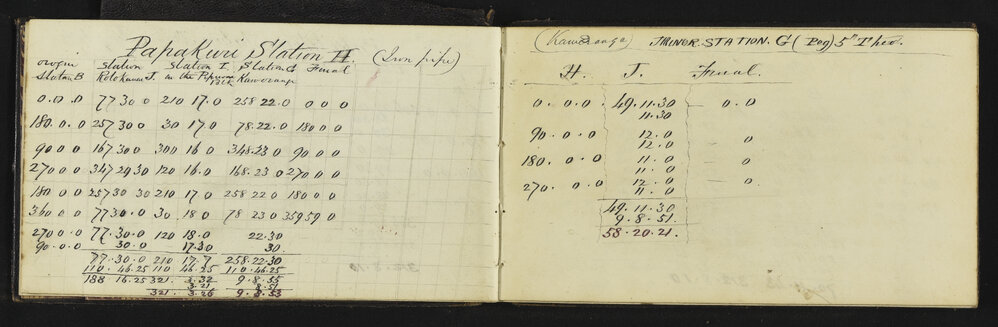 Papakuri Station H. (Iron pipe)
origin Station Station I. Station G Final
Station B Rotokauri J. in the 12th Kaweranga
0.0.0 77 30 0 210 17.0 258 22.0 0 0 0
180.0.0 257 30 0 30 17 0 78.22.0 180 0 0
90 0 0 167 30 0 300 16 0 348.23 0 90 0 0
270 0 0 347 29 30 120 16.0 168.23 0 270 0 0
180 0 0 257 30 30 210 17 0 258 22 0 180 0 0
360 0 0 77 30.0 30 18 0 78 23 0 359 59 0
270 0 0 77.30.0 120 18.0 22.30
90.0.0 30.0 17.30 30.
77.30.0 210 17.7 258.22.30
110.46.25 110 46.25 110.46.25
188 16.25 321. 3.32 9.8.55
3.21 8.51
321. 3.26 9.8.53
(Kaweranga) MINOR STATION. G (Peg) 5" Theo.
H. J. Final.
0. 0.0 49.11.30 — 0.0
11.30
90.0.0 12.0 — 0
12.0
180. 0.0 11.0 — 0
11.0
270. 0.0 12.0 — 0.
11.0
49.11.30
9.8.51.
58.20.21.